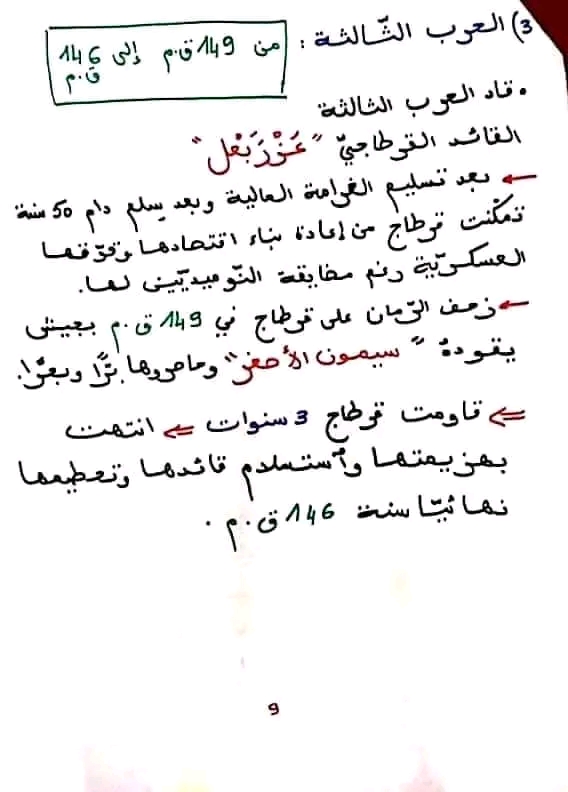 3) الحرب الثّالثة : من 149 ق.م إلى 146 ق.م
• قاد الحرب الثالثة
القائد القرطاجيّ "عَزْرَبَعْل"
← بعد تسليم الغرامة المالية وبعد سلم دام 50 سنة
تمكّنت قرطاج من إعادة بناء اقتصادها وقوّتها
العسكريّة رغم مضايقة النّوميديّين لها.
← زحف الرّومان على قرطاج في 149 ق.م بجيش
يقوده "سيبيون الأصغر" وحاصروها برًّا وبحرًا.
⇐ قاومت قرطاج 3 سنوات ⇐ انتهت
بهزيمتها واستسلام قائدها وتحطيمها
نهائيّا سنة 146 ق.م .
9